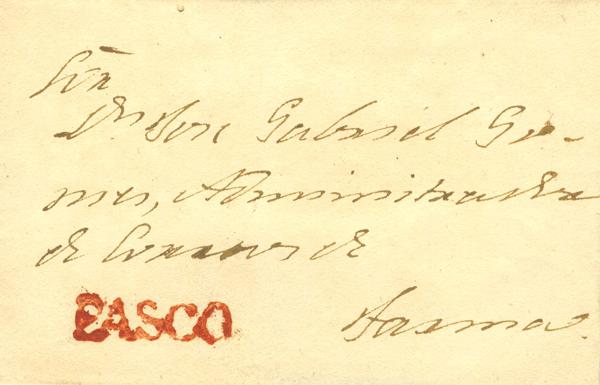 Sōn
Dn. Jose Gabriel Go-
mes, Administrador
de Correos de
PASCO Tarma.